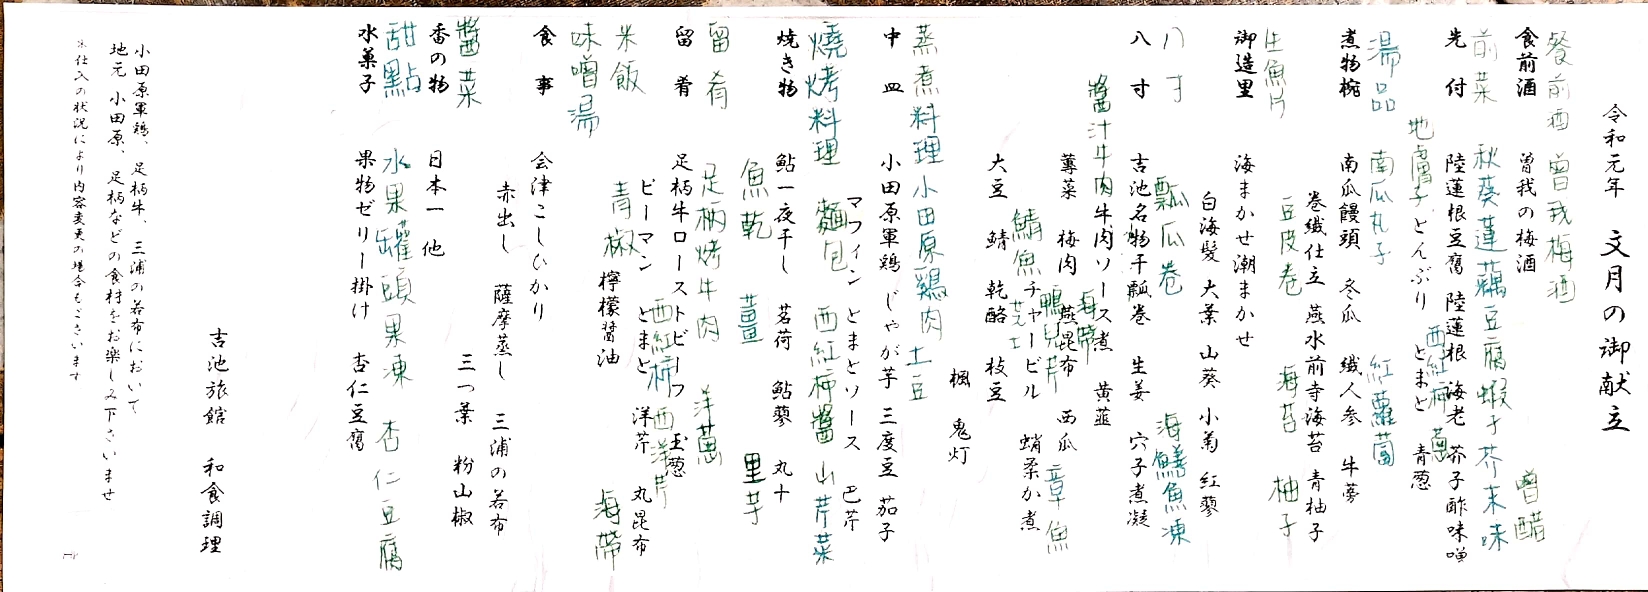 令和元年　文月の御献立
餐前酒　曾我梅酒
食前酒　曽我の梅酒
前菜　秋葵蓮藕豆腐蝦子芥末味噌醋
先付　陸蓮根豆腐　陸蓮根　海老　芥子酢味噌
地膚子　西紅柿　蔥
とんぶり　とまと　青葱
湯品　南瓜丸子　紅蘿蔔
煮物椀　南瓜饅頭　冬瓜　繊人参　牛蒡
巻繊仕立　燕水前寺海苔　青柚子
生魚片　豆皮卷　海苔　柚子
御造里　海まかせ潮まかせ
白海髪　大葉　山葵　小菊　紅蓼
八寸　瓢瓜卷　海鱔魚凍
八寸　吉池名物干瓢巻　生姜　穴子煮凝
醬汁牛肉　海帶
牛肉ソース煮　黄韮
蓴菜　梅肉　燕昆布　西瓜
鴨兒芹　章魚
鯖魚　芝士
チャービル　蛸柔か煮
大豆　鯖　乾酪　枝豆
楓　鬼灯
蒸煮料理　小田原鷄肉　土豆
中皿　小田原軍鶏　じゃが芋　三度豆　茄子
マフィン　とまとソース　巴芹
燒烤料理　麵包　西紅柿醬　山芹菜
焼き物　鮎一夜干し　茗荷　鮎蓼　丸十
魚乾　薑　里芋
留肴　足柄烤牛肉　洋蔥
留肴　足柄牛ローストビーフ　玉葱
西紅柿　西洋芹
ピーマン　とまと　洋芹　丸昆布
青椒　海帶
檸檬醤油
米飯
味噌湯
食事　会津こしひかり
赤出し　薩摩蒸し　三浦の若布
三つ葉　粉山椒
醬菜
香の物　日本一　他
甜點　水果罐頭果凍　杏仁豆腐
水菓子　果物ゼリー掛け　杏仁豆腐
吉池旅館　和食調理
小田原軍鶏、足柄牛、三浦の若布において
地元　小田原、足柄などの食材をお楽しみ下さいませ
※仕入の状況により内容変更の場合もございます